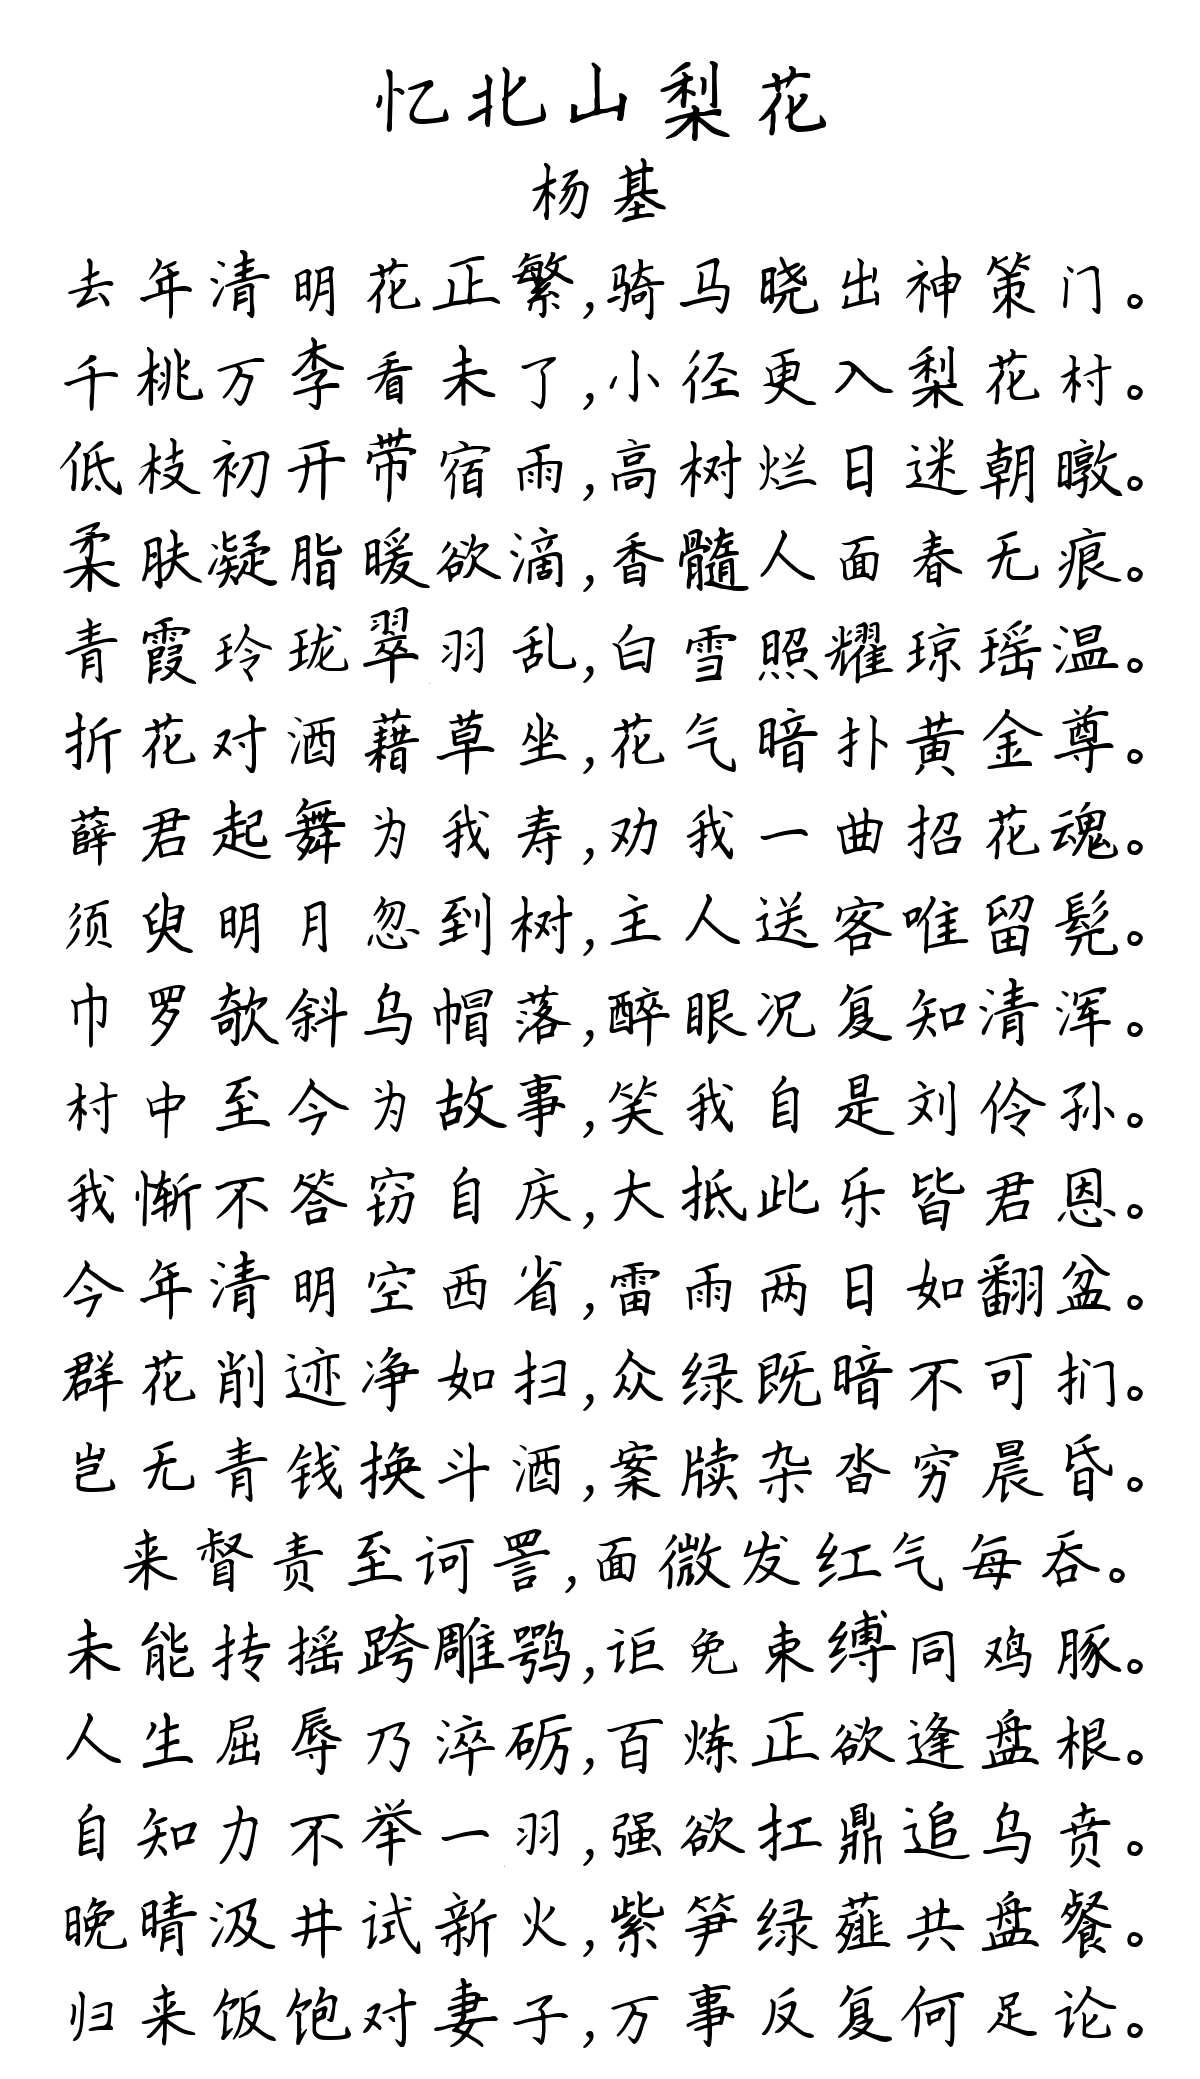 忆北山梨花
杨基
去年清明花正繁,骑马晓出神策门。
千桃万李看未了,小径更入梨花村。
低枝初开带宿雨,高树烂日迷朝暾。
柔肤凝脂暖欲滴,香髓人面春无痕。
青霞玲珑翠羽乱,白雪照耀琼瑶温。
折花对酒藉草坐,花气暗扑黄金尊。
薛君起舞为我寿,劝我一曲招花魂。
须臾明月忽到树,主人送客唯留髡。
巾罗欹斜乌帽落,醉眼况复知清浑。
村中至今为故事,笑我自是刘伶孙。
我惭不答窃自庆,大抵此乐皆君恩。
今年清明空西省,雷雨两日如翻盆。
群花削迹净如扫,众绿既暗不可扪。
岂无青钱换斗酒,案牍杂沓穷晨昏。
来督责至诃詈,面微发红气每吞。
未能抟摇跨雕鹗,讵免束缚同鸡豚。
人生屈辱乃淬砺,百炼正欲逢盘根。
自知力不举一羽,强欲扛鼎追乌贲。
晚晴汲井试新火,紫笋绿薤共盘餐。
归来饭饱对妻子,万事反复何足论。